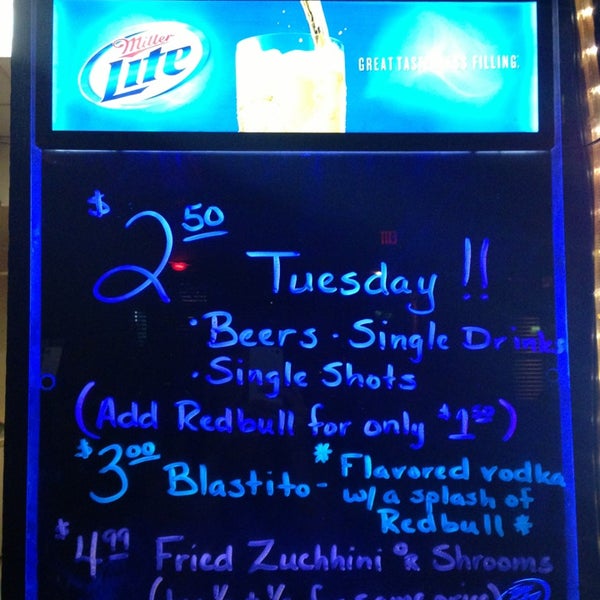 Miller
Lite
GREAT TASTE LESS FILLING.
$2.50 Tuesday !!
· Beers · Single Drinks
· Single Shots
(Add Redbull for only $1.50)
$3.00 Blastito - * Flavored vodka
w/ a splash of
Redbull *
$4.99 Fried Zuchhini OR Shrooms
same price)